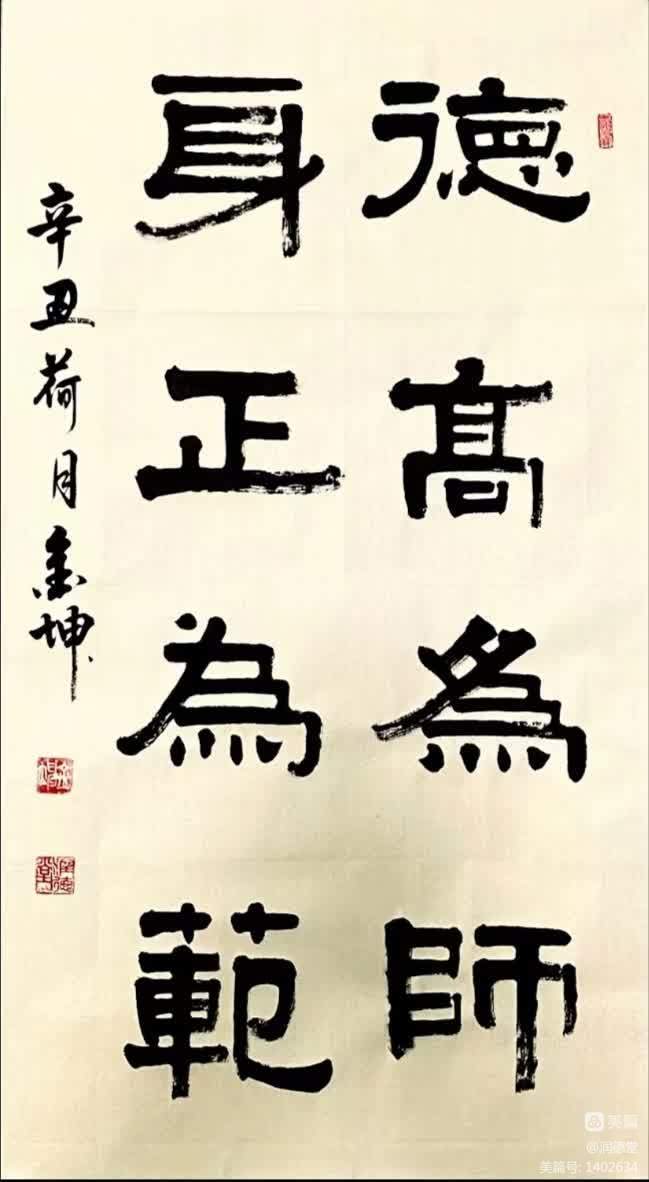 德高為師
身正為範
辛丑荷月金坤
潤德堂
美篇
@润德堂
美篇号: 1402634